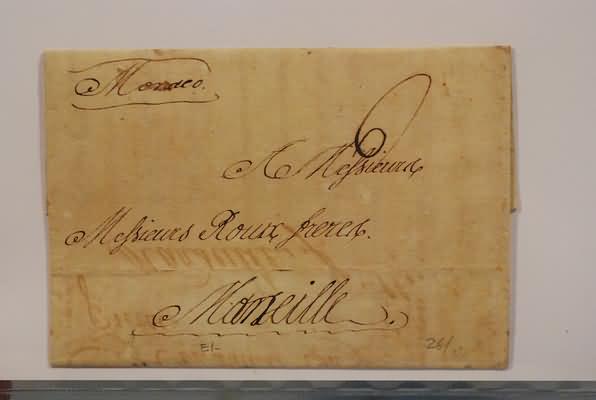 Monaco.
6
A Messieurs
Messieurs Roux freres.
Marseille.
E1-
26/.